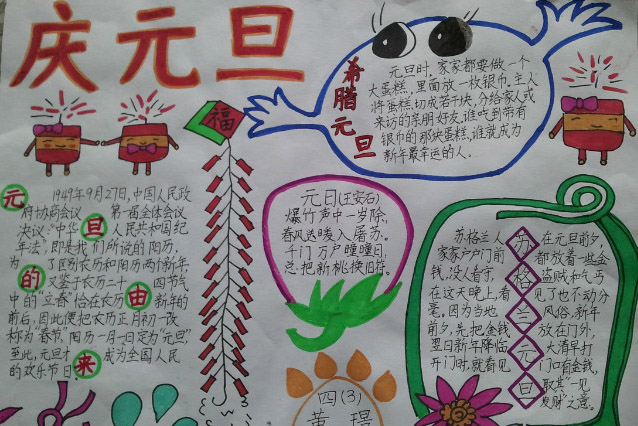 庆元旦
福
希腊元旦
元旦时,家家都要做一个
大蛋糕,里面放一枚银币,主人
将蛋糕切成若干块,分给家人或
来访的亲朋好友,谁吃到带有
银币的那块蛋糕,谁就成为
新年最幸运的人。
元旦的由来
1949年9月27日,中国人民政
府协商会议 第一届全体会议
决议:"中华 人民共和国纪
年法",即是我们所说的阳历,
为了区防农历和阳历两个新年,
又鉴于农历二十 四节气
中的"立春"恰在农历 新年的
前后,因此便把农历正月初一改
称为"春节",阳历一月一日定为"元旦",
至此,元旦才 成为全国人民
的欢乐节日。
元日(王安石)
爆竹声中一岁除,
春风送暖入屠苏。
千门万户曈曈日,
总把新桃换旧符。
苏格兰元旦
苏格兰人 在元旦前夕,
家家户户门前 都放着一些金
钱,没人看守, 盗贼和乞丐
在这天晚上,看 见了也不动分
毫。因为当地 风俗,新年
前夕,先把金钱 放在门外,
翌日新年降临 大清早打
开门时,就看见 门口有金钱,
取其"一见
发财"之意。
四(3)
黄璟